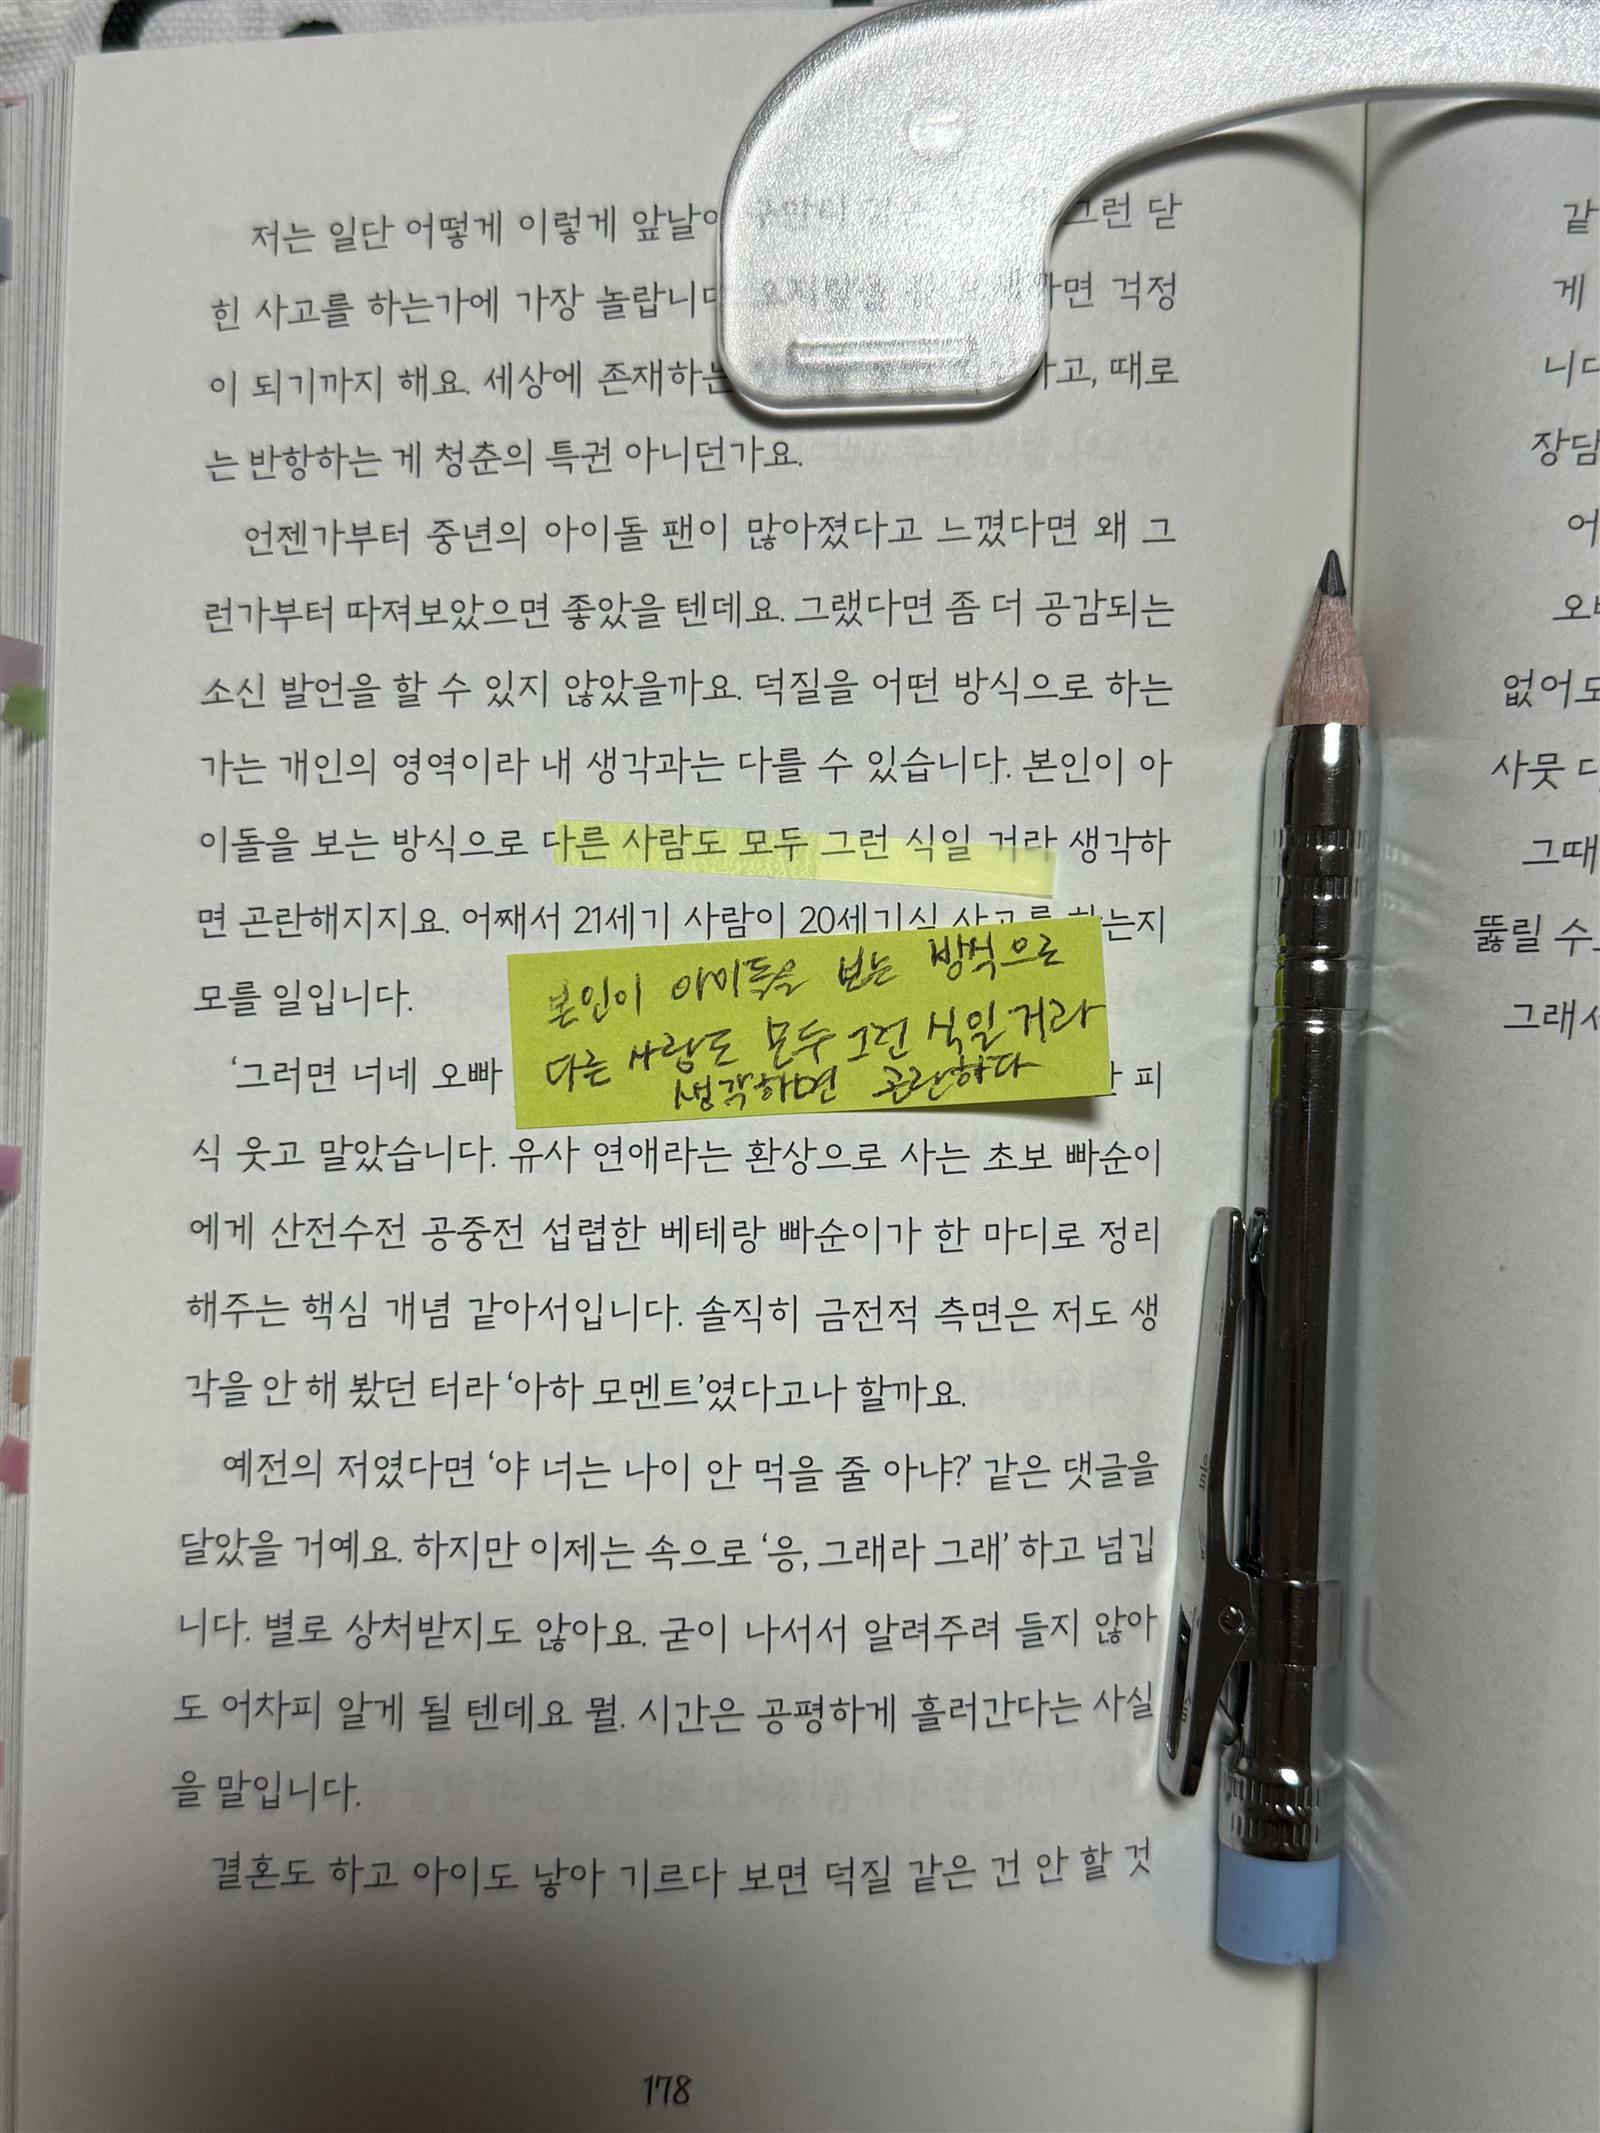 저는 일단 어떻게 이렇게 그런 닫
힌 사고를 하는가에 가장 놀랍니다 걱정
이 되기까지 해요. 세상에 존재하는 때로
는 반항하는 게 청춘의 특권 아니던가요.
언젠가부터 중년의 아이돌 팬이 많아졌다고 느꼈다면 왜 그
런가부터 따져보았으면 좋았을 텐데요. 그랬다면 좀 더 공감되는
소신 발언을 할 수 있지 않았을까요. 덕질을 어떤 방식으로 하는
가는 개인의 영역이라 내 생각과는 다를 수 있습니다. 본인이 아
이돌을 보는 방식으로 다른 사람도 모두 그런 식일 거라 생각하
면 곤란해지지요. 어째서 21세기 사람이 20세기식 사고를 하는지
모를 일입니다.
본인이 아이돌을 보는 방식으로
다른 사람도 모두 그런 식일 거라
생각하면 곤란하다
‘그러면 너네 오빠 피
식 웃고 말았습니다. 유사 연애라는 환상으로 사는 초보 빠순이
에게 산전수전 공중전 섭렵한 베테랑 빠순이가 한 마디로 정리
해주는 핵심 개념 같아서입니다. 솔직히 금전적 측면은 저도 생
각을 안 해 봤던 터라 ‘아하 모멘트’였다고나 할까요.
예전의 저였다면 ‘야 너는 나이 안 먹을 줄 아냐?’ 같은 댓글을
달았을 거예요. 하지만 이제는 속으로 ‘응, 그래라 그래’ 하고 넘깁
니다. 별로 상처받지도 않아요. 굳이 나서서 알려주려 들지 않아
도 어차피 알게 될 텐데요 뭘. 시간은 공평하게 흘러간다는 사실
을 말입니다.
결혼도 하고 아이도 낳아 기르다 보면 덕질 같은 건 안 할 것
178
같
게
니다
장담
어
없어도
사뭇
그때
뚫릴 수
그래서